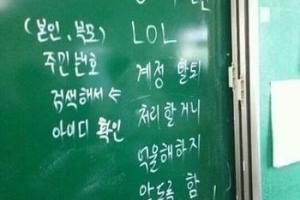 LOL
계정 탈퇴
처리할거니
억울해하지
않도록 함
(본인, 부모)
주민번호
검색해서 ⇐
아이디 확인